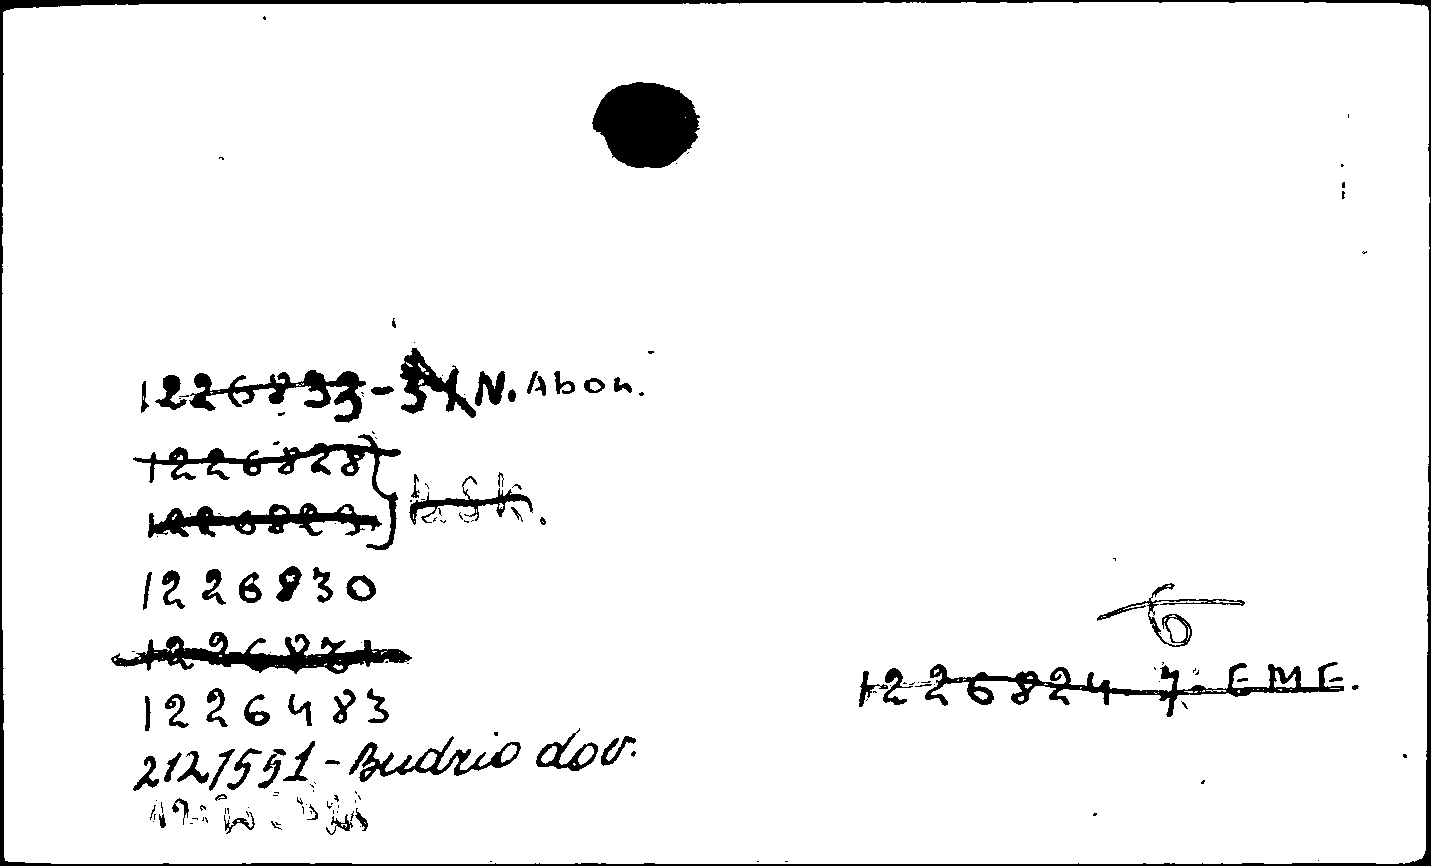 1226833 - N. Abon.
1226828
1226829
1226830
1226831
1226483
2127551 - Budrio dov.
6
1226824 7. EME.